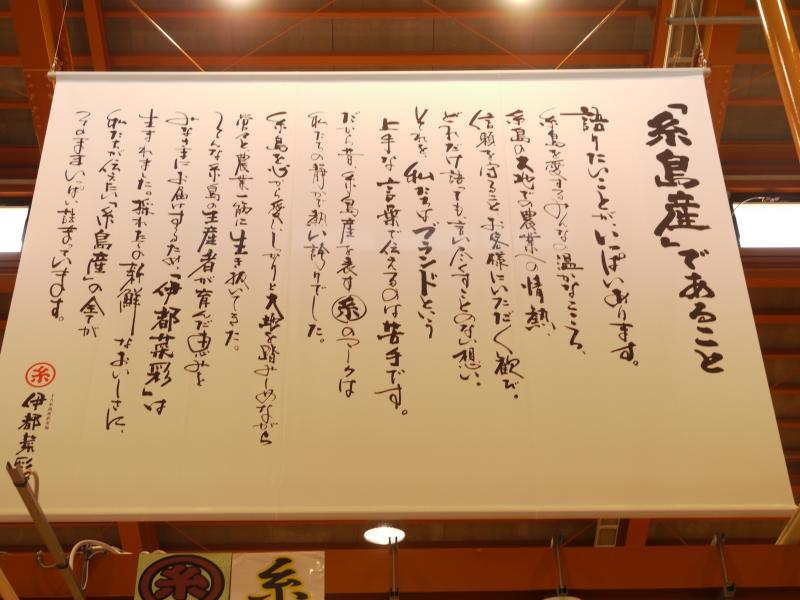 「糸島産」であること
語りたいことが、いっぱいあります。
糸島を愛するみんなの温かなこころ、
糸島の大地での農業への情熱、
信頼を守ること、お客様にいただく歓び。
どれだけ語っても、言いつくすことのない想い。
それを、私たちはブランドという
上手な言葉で伝えるのは苦手です。
だから昔、糸島産を表す糸のマークは
私たちの静かで熱い誇りでした。
糸島を心から愛し、しっかりと大地を踏みしめながら
堂々と農業一筋に生き抜いてきた。
そんな糸島の生産者が育んだ恵みを
みなさまにお届けするため「伊都菜彩」は
生まれました。採れたての新鮮なおいしさに、
私たちが伝えたい「糸島産」の全てが
そのままいっぱい詰まっています。
糸
伊都菜彩
糸
糸